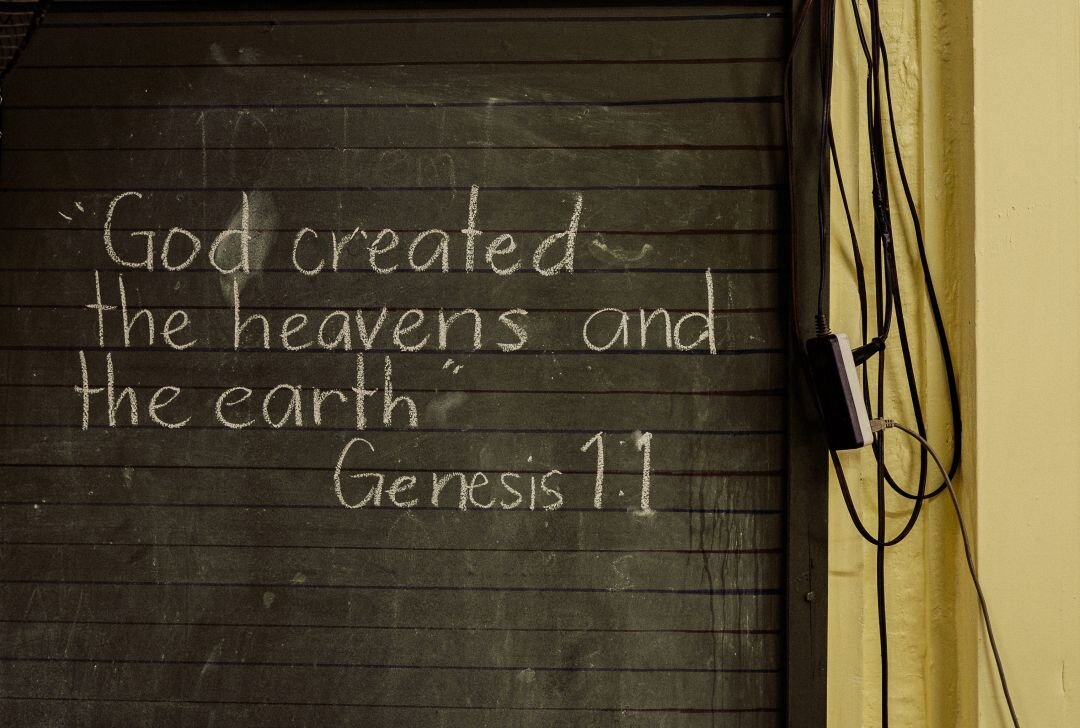 "God created
the heavens and
the earth"
Genesis 1:1